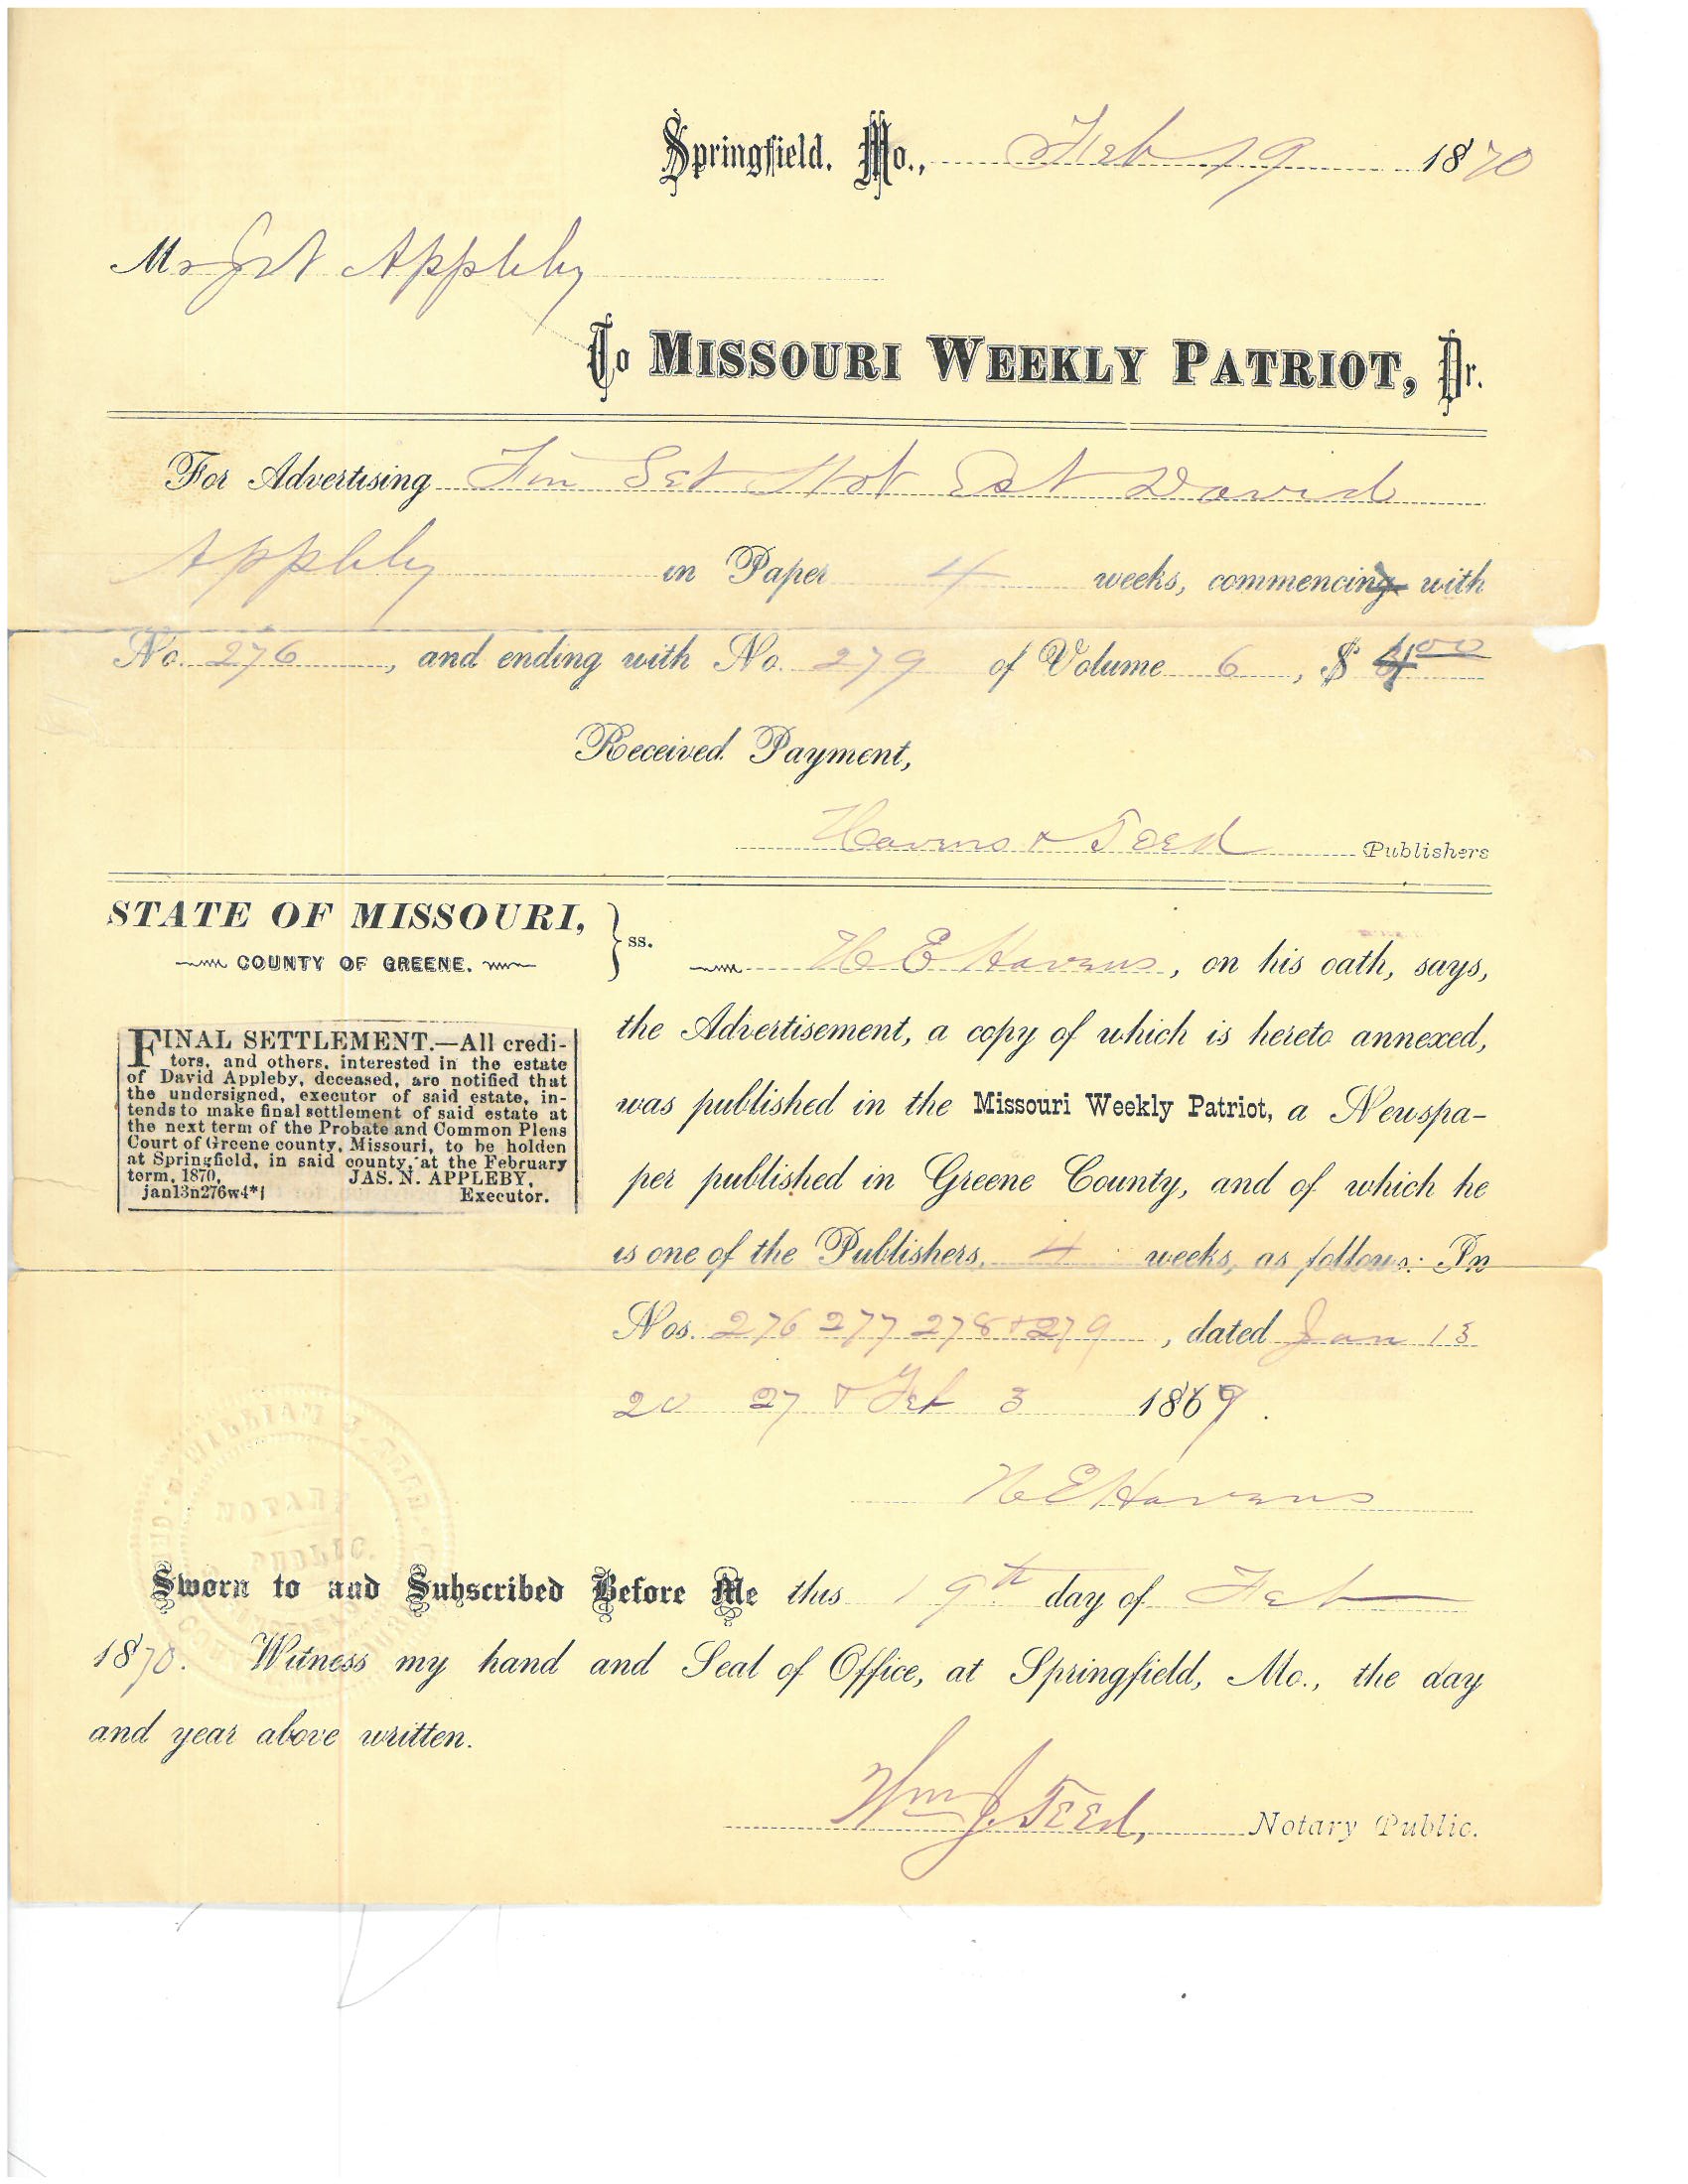 Springfield, Mo., Feb 19 1870
Mr J N Appleby
To MISSOURI WEEKLY PATRIOT, Dr.
For Advertising Fin Set Not Est David
Appleby in Paper 4 weeks, commencing with
No. 276, and ending with No. 279 of Volume 6, $ 4.00
Received Payment,
Havens & Teed Publishers
STATE OF MISSOURI,
COUNTY OF GREENE.
ss.
H E Havens, on his oath, says,
the Advertisement, a copy of which is hereto annexed,
was published in the Missouri Weekly Patriot, a Newspa-
per published in Greene County, and of which he
is one of the Publishers, 4 weeks, as follows: In
Nos. 276 277 278 & 279, dated Jan 13
20 27 & Feb 3 1869.
H E Havens
FINAL SETTLEMENT.—All credi-
tors, and others, interested in the estate
of David Appleby, deceased, are notified that
the undersigned, executor of said estate, in-
tends to make final settlement of said estate at
the next term of the Probate and Common Pleas
Court of Greene county, Missouri, to be holden
at Springfield, in said county, at the February
term, 1870. JAS. N. APPLEBY,
jan13n276w4*1 Executor.
NOTARY
PUBLIC.
Sworn to and Subscribed Before Me this 19th day of Feb
1870. Witness my hand and Seal of Office, at Springfield, Mo., the day
and year above written.
Wm J. Teed, Notary Public.